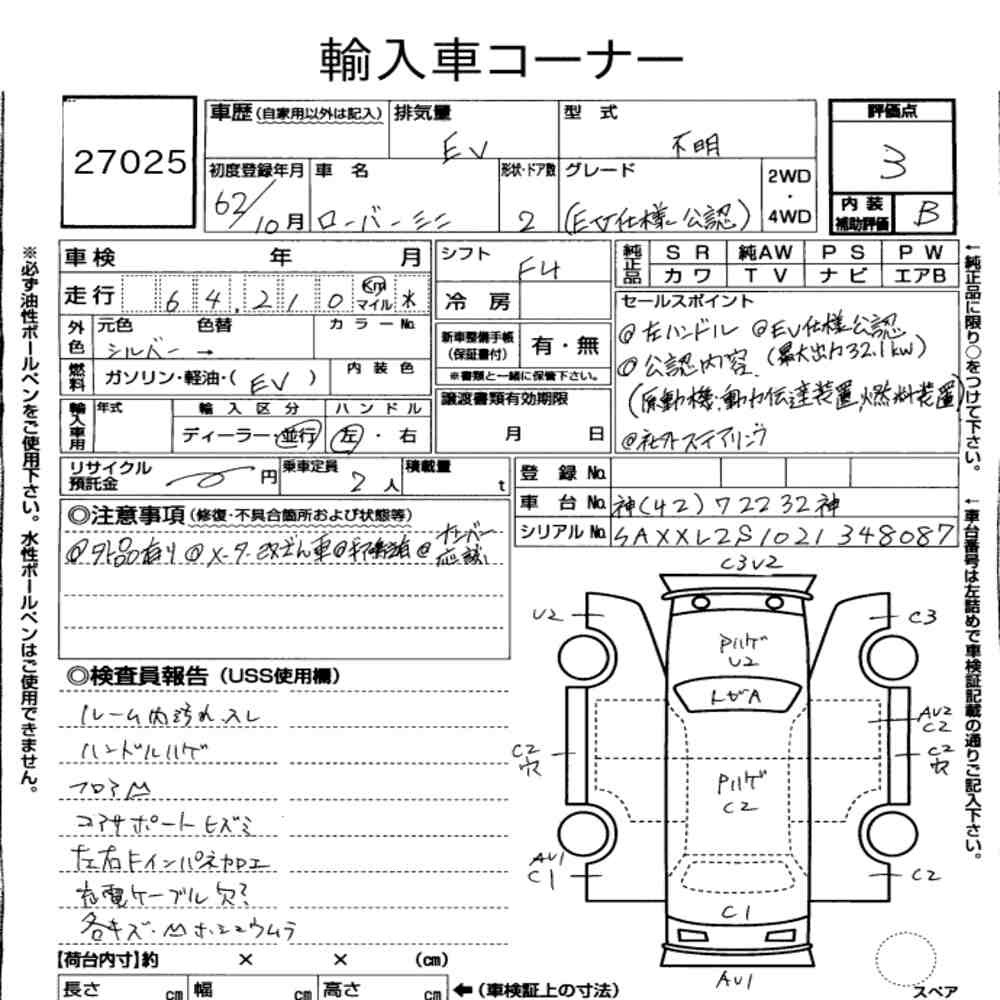 輸入車コーナー
27025
車歴 (自家用以外は記入) 排気量 EV 型式 不明
初度登録年月 62/10月 車名 ローバーミニ 形状・ドア数 2 グレード (EV仕様 公認) 2WD・4WD
評価点 3
内装補助評価 B
車検 年 月
走行 64,210 Km マイル ※
外色 元色 シルバー → 色替 カラーNo.
燃料 ガソリン・軽油・( EV ) 内装色
輸入車用 年式 輸入区分 ディーラー・並行 ハンドル 左・右
シフト F4
冷房
新車整備手帳(保証書付) 有・無
※書類と一緒に保管下さい。
譲渡書類有効期限
月 日
純正品 SR 純AW PS PW
カワ TV ナビ エアB
セールスポイント
@左ハンドル @EV仕様公認
@公認内容 (最大出力32.1kw)
(原動機、動力伝達装置、燃料装置)
@社外ステアリング
リサイクル預託金 円 乗車定員 2人 積載量 t
登録No.
車台No. 神(42)72232神
シリアルNo. SAXXL2S1021348087
◎注意事項 (修復・不具合箇所および状態等)
@外品有り @メーター改ざん車
◎検査員報告 (USS使用欄)
ルーム内汚れ、スレ
ハンドルハゲ
フロアM
コアサポートヒズミ
左右Fインパネカロエ
充電ケーブル欠ミ
各キズ・Mホシュウムラ
【荷台内寸】約 × × (cm)
長さ cm 幅 cm 高さ cm
←(車検証上の寸法)
C3V2
U2
C3
Pハゲ
U2
トビA
AU2
C2
C2
穴
C2
穴
Pハゲ
C2
AU1
C1
C2
C1
AU1
スペア
※必ず油性ボールペンをご使用下さい。水性ボールペンはご使用できません。
←純正品に限り○をつけて下さい。
←車台番号は左詰めで車検証記載の通りご記入下さい。